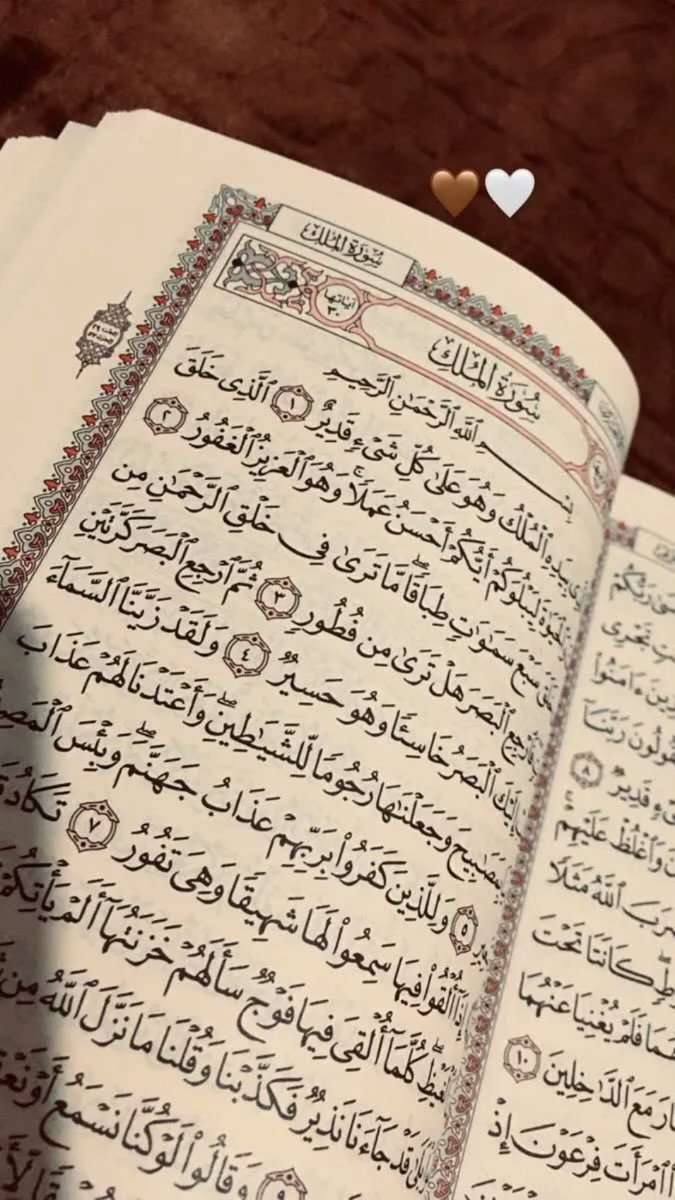 سُورَةُ المُلْكِ
اٰيَاتُهَا ٣٠
سُورَةُ المُلْكِ
بِسْمِ ٱللَّهِ ٱلرَّحْمَٰنِ ٱلرَّحِيمِ
بِيَدِهِ ٱلْمُلْكُ وَهُوَ عَلَىٰ كُلِّ شَىْءٍ قَدِيرٌ ١ ٱلَّذِى خَلَقَ
لِيَبْلُوَكُمْ أَيُّكُمْ أَحْسَنُ عَمَلًا ۚ وَهُوَ ٱلْعَزِيزُ ٱلْغَفُورُ ٢
سَبْعَ سَمَٰوَٰتٍ طِبَاقًا ۖ مَّا تَرَىٰ فِى خَلْقِ ٱلرَّحْمَٰنِ مِن
فَٱرْجِعِ ٱلْبَصَرَ هَلْ تَرَىٰ مِن فُطُورٍ ٣ ثُمَّ ٱرْجِعِ ٱلْبَصَرَ كَرَّتَيْنِ
إِلَيْكَ ٱلْبَصَرُ خَاسِئًا وَهُوَ حَسِيرٌ ٤ وَلَقَدْ زَيَّنَّا ٱلسَّمَآءَ
بِمَصَٰبِيحَ وَجَعَلْنَٰهَا رُجُومًا لِّلشَّيَٰطِينِ ۖ وَأَعْتَدْنَا لَهُمْ عَذَابَ
٥ وَلِلَّذِينَ كَفَرُوا۟ بِرَبِّهِمْ عَذَابُ جَهَنَّمَ ۖ وَبِئْسَ
إِذَآ أُلْقُوا۟ فِيهَا سَمِعُوا۟ لَهَا شَهِيقًا وَهِىَ تَفُورُ ٧ تَكَادُ
ٱلْغَيْظِ ۖ كُلَّمَآ أُلْقِىَ فِيهَا فَوْجٌ سَأَلَهُمْ خَزَنَتُهَآ أَلَمْ يَأْتِكُمْ
قَدْ جَآءَنَا نَذِيرٌ فَكَذَّبْنَا وَقُلْنَا مَا نَزَّلَ ٱللَّهُ مِن
٩ وَقَالُوا۟ لَوْ كُنَّا نَسْمَعُ أَوْ
رَبُّكُمْ
تَجْرِى
ءَامَنُوا۟
يَقُولُونَ رَبَّنَآ
قَدِيرٌ ٨
وَٱغْلُظْ عَلَيْهِمْ
ٱللَّهُ مَثَلًا
كَانَتَا تَحْتَ
فَلَمْ يُغْنِيَا عَنْهُمَا
مَعَ ٱلدَّٰخِلِينَ ١٠
ٱمْرَأَتَ فِرْعَوْنَ إِذْ